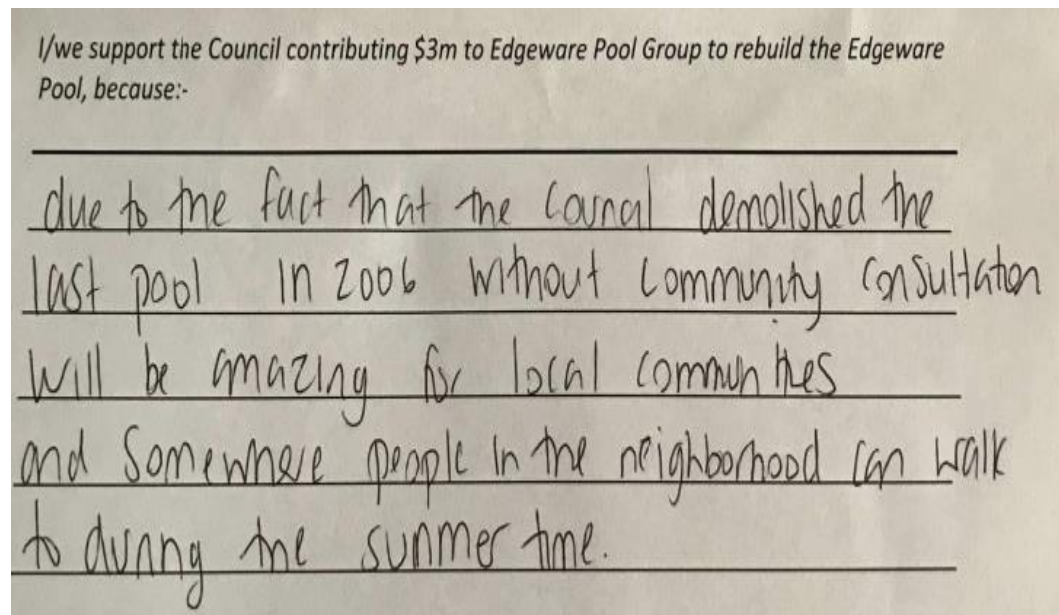 I/we support the Council contributing $3m to Edgeware Pool Group to rebuild the Edgeware
Pool, because:-
due to the fact that the Council demolished the
last pool in 2006 without community consultation
will be amazing for local communities
and somewhere people in the neighborhood can walk
to during the summer time.